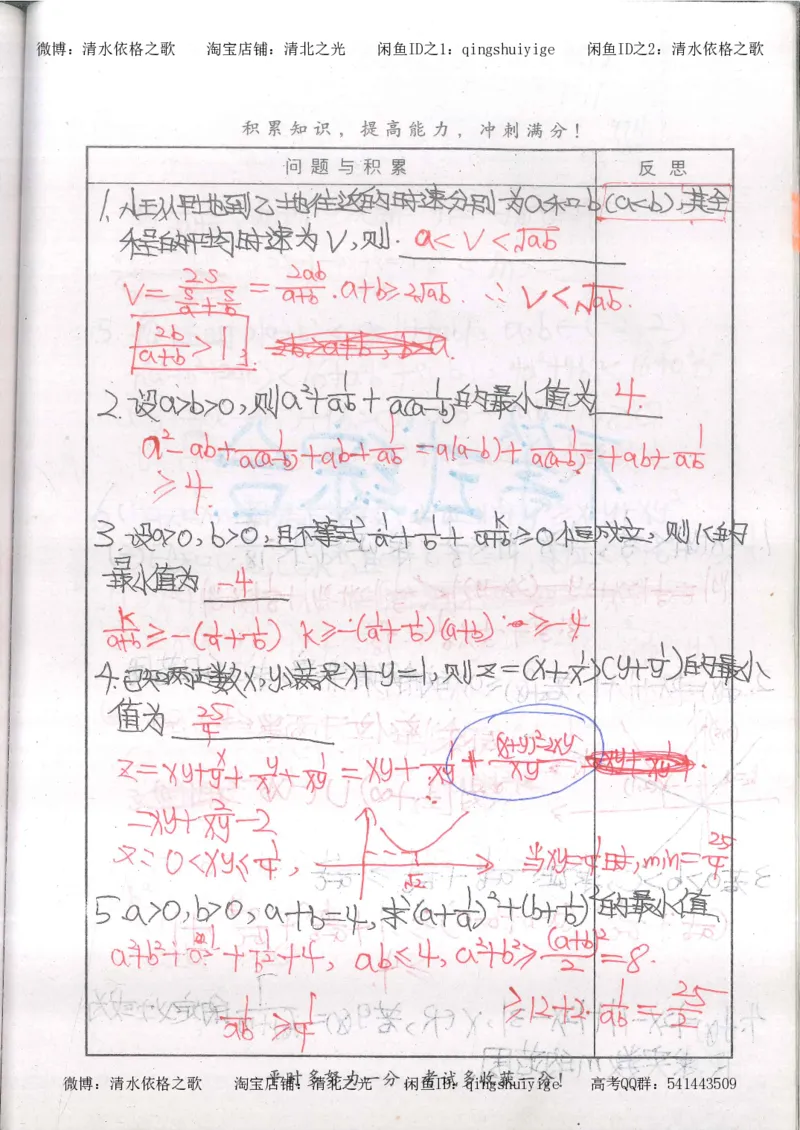 微博：清水依格之歌 淘宝店铺：清北之光 闲鱼ID之1：qingshuiyige 闲鱼ID之2：清水依格之歌
积累知识，提高能力，冲刺满分！
问题与积累 反思
1.小王从甲地到乙地往返的时速分别为a和b(a<b),其全
程的平均时速为V,则. a<V<√ab
V=2s/(s/a+s/b)=2ab/(a+b).a+b≥2√ab. ∴V<√ab.
2b/(a+b)>1;
2.设a>b>0,则a²+1/ab+1/a(a-b)的最小值为 4.
a²-ab+1/a(a-b)+ab+1/ab=a(a-b)+1/a(a-b)+ab+1/ab
≥4
3.设a>0,b>0,且不等式1/a+1/b+k/(a+b)≥0恒成立,则k的
最小值为 -4
k/(a+b)≥-(1/a+1/b) k≥-(1/a+1/b)(a+b) ≥-4
4.已知两正数x,y满足x+y=1,则z=(x+1/x)(y+1/y)的最小
值为 25/4
z=xy+x/y+y/x+1/xy=xy+1/xy+((x+y)²-2xy)/xy
=xy+2/xy-2
又∵0<xy≤1/4, √2 当xy=1/4时,min=25/4
5.a>0,b>0,a+b=4,求(a+1/a)²+(b+1/b)²的最小值
a²+b²+1/a²+1/b²+4, ab≤4,a²+b²≥(a+b)²/2=8.
1/ab≥1/4 ≥12+2·1/ab=25/2
平时多努力一分，考试多收获一分！
微博：清水依格之歌 淘宝店铺：清北之光 闲鱼ID：qingshuiyige 高考QQ群：541443509